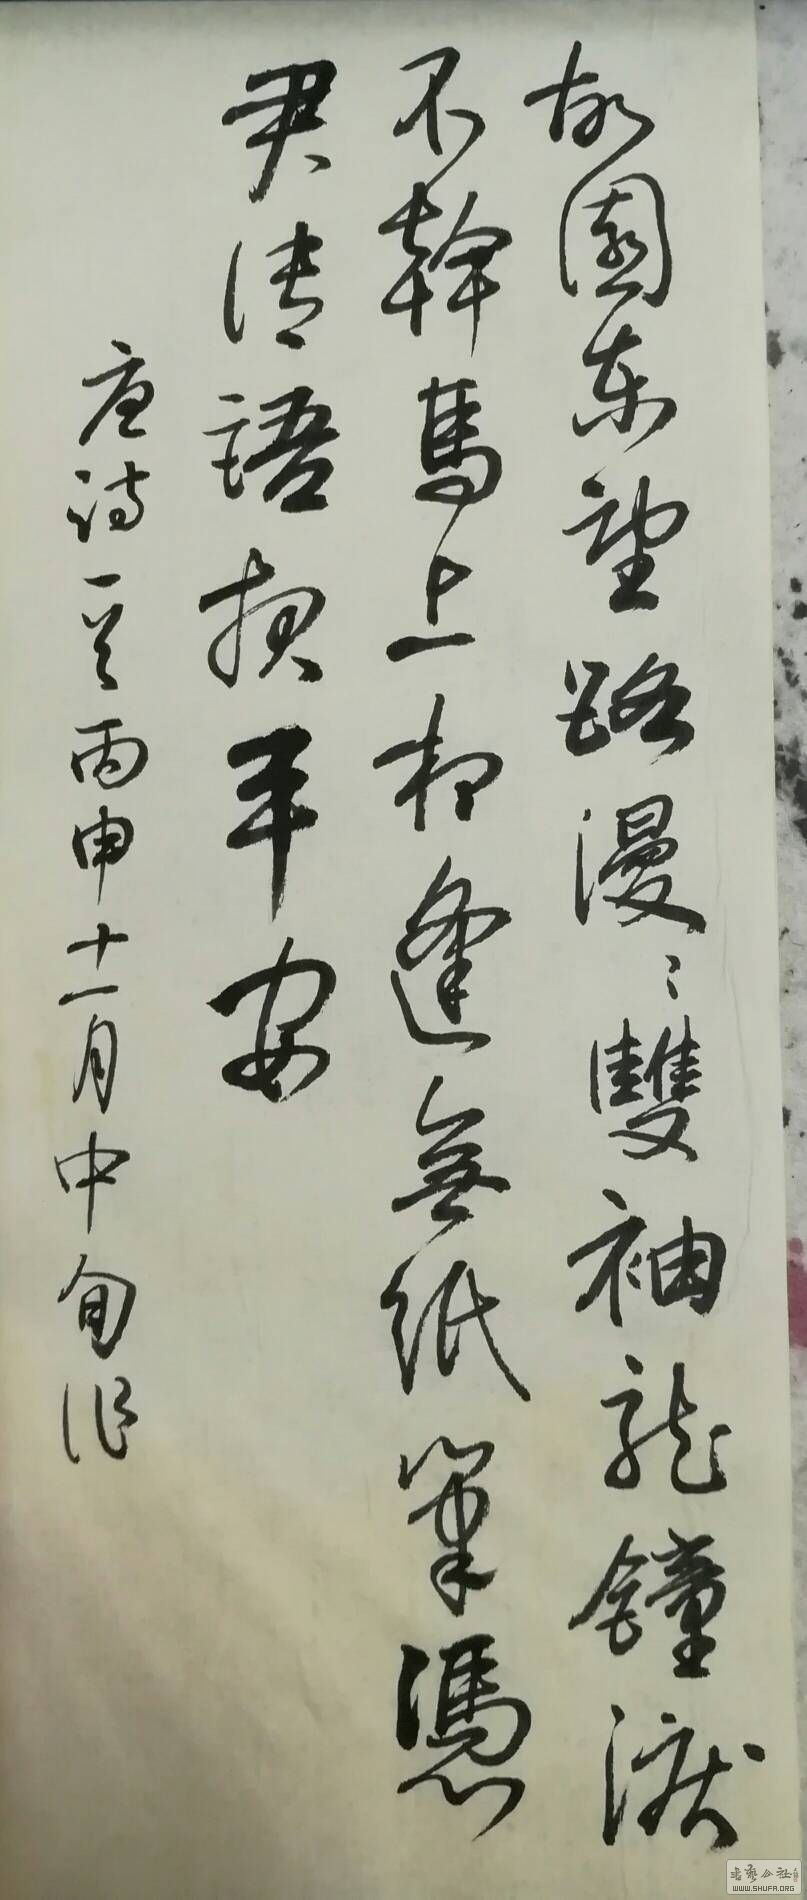 故園東望路漫〻雙袖龍鐘淚
不幹馬上相逢無紙筆憑
君傳語報平安
唐詩一首丙申十一月中旬作
書藝公社
WWW.SHUFA.ORG